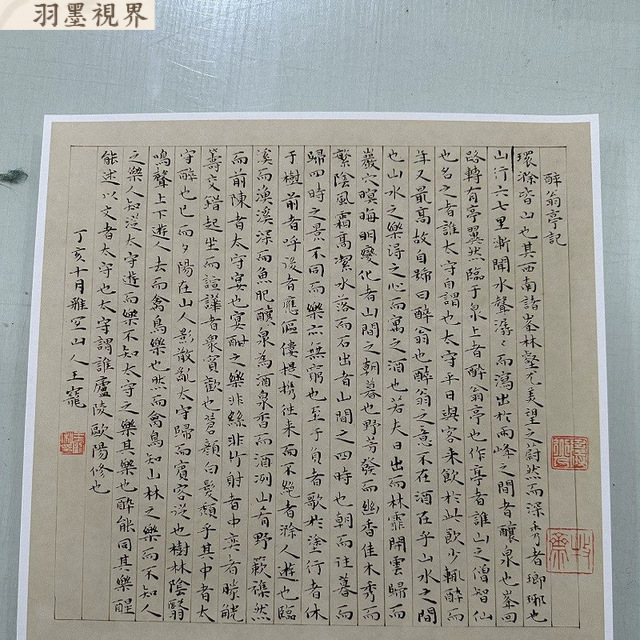 羽墨視界
醉翁亭記
環滁皆山也其西南諸峯林壑尤美望之蔚然而深秀者瑯琊也
山行六七里漸聞水聲潺〻而瀉出於兩峰之間者釀泉也峯回
路轉有亭翼然臨于泉上者醉翁亭也作亭者誰山之僧智仙
也名之者誰太守自謂也太守平日與客來飲於此飲少輒醉而
年又最高故自號曰醉翁也醉翁之意不在酒在乎山水之間
也山水之樂得之心而寓之酒也若夫日出而林霏開雲歸而
巖穴暝晦明變化者山間之朝暮也野芳發而幽香佳木秀而
繁陰風霜高潔水落而石出者山間之四時也朝而往暮而
歸四時之景不同而樂亦無窮也至于負者歌於塗行者休
于樹前者呼後者應傴僂提攜往來而不絕者滁人遊也臨
溪而漁溪深而魚肥釀泉為酒泉香而酒洌山肴野蔌雜然
而前陳者太守宴也宴酣之樂非絲非竹射者中奕者勝觥
籌交錯起坐而諠譁者衆賓歡也蒼顏白髮頹乎其中者太
守醉也已而夕陽在山人影散亂太守歸而賓客從也樹林陰翳
鳴聲上下遊人去而禽鳥樂也然而禽鳥知山林之樂而不知人
之樂人知從太守遊而樂不知太守之樂其樂也醉能同其樂醒
能述以文者太守也太守謂誰廬陵歐陽修也
丁亥十月雅宜山人王寵